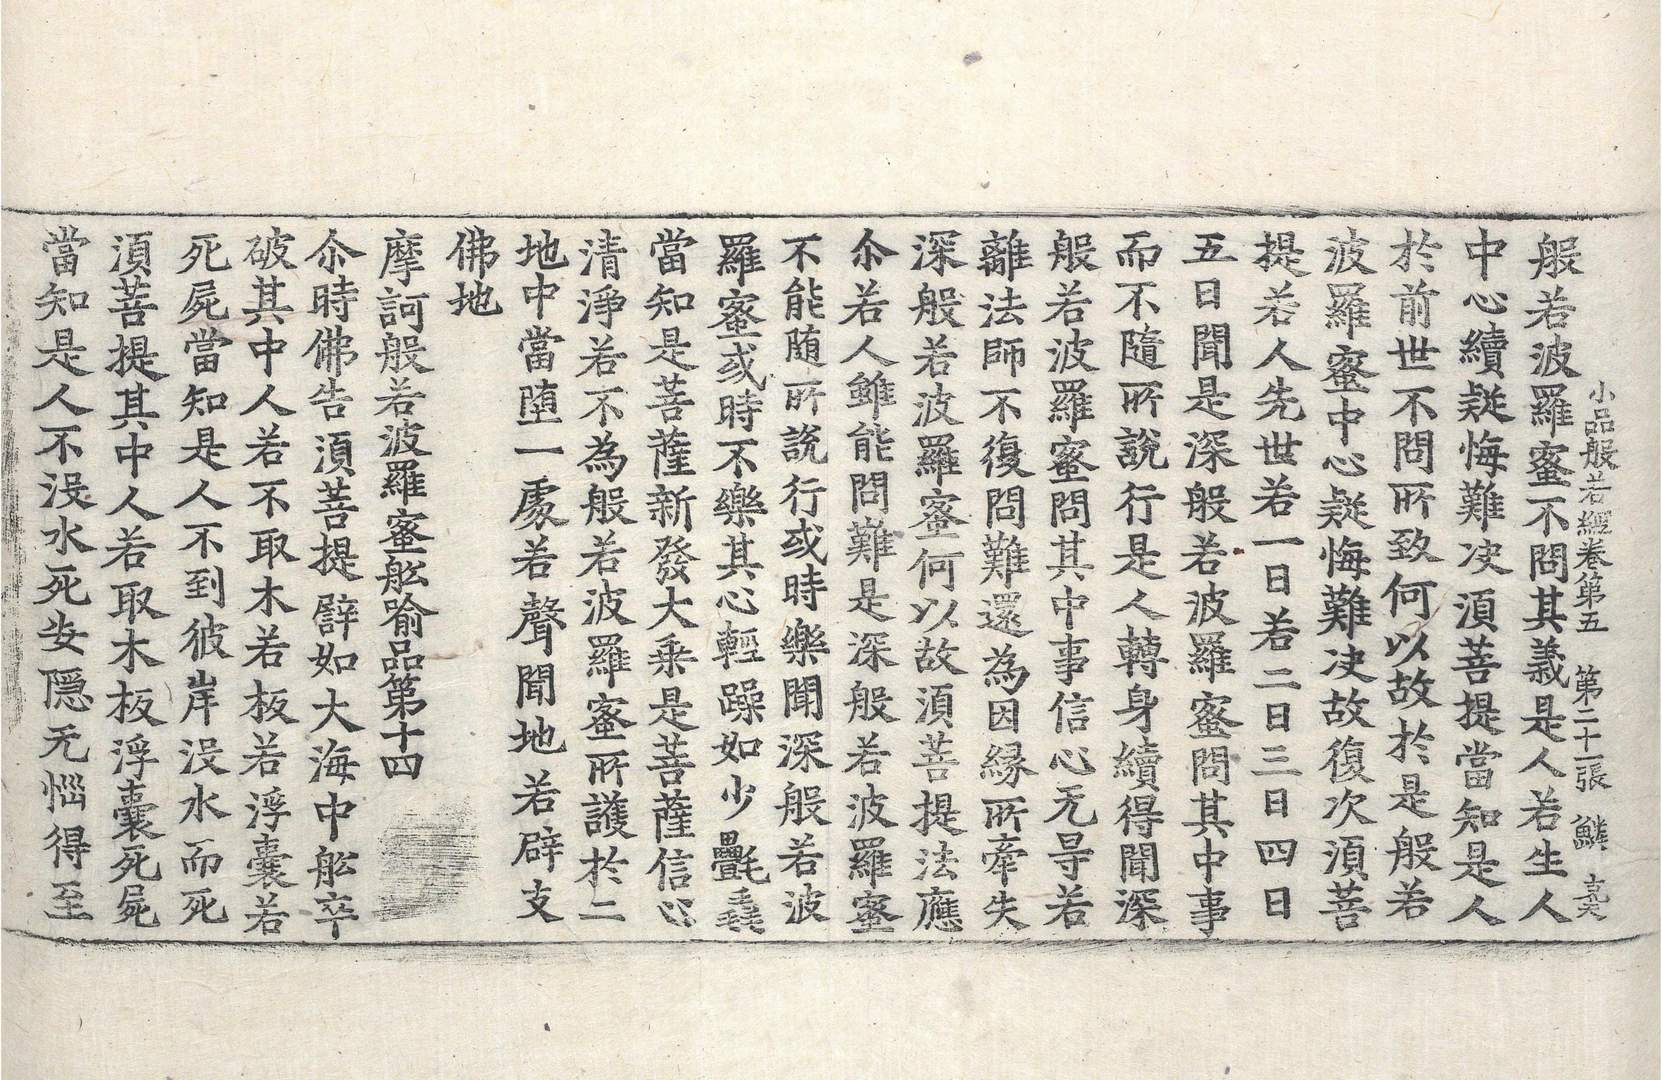 小品般若經卷第五 第二十一張 鱗
般若波羅蜜不問其義是人若生人
中心續疑悔難決須菩提當知是人
於前世不問所致何以故於是般若
波羅蜜中心疑悔難決故復次須菩
提若人先世若一日若二日三日四日
五日聞是深般若波羅蜜問其中事
而不隨所說行是人轉身續得聞深
般若波羅蜜問其中事信心无㝵若
離法師不復問難還為因緣所牽失
深般若波羅蜜何以故須菩提法應
尒若人雖能問難是深般若波羅蜜
不能随所說行或時樂聞深般若波
羅蜜或時不樂其心輕躁如少㲲毳
當知是菩薩新發大乘是菩薩信心
清淨若不為般若波羅蜜所護於二
地中當堕一處若聲聞地若辟支
佛地
摩訶般若波羅蜜舩喻品第十四
尒時佛告須菩提譬如大海中舩卒
破其中人若不取木若板若浮囊若
死屍當知是人不到彼岸沒水而死
須菩提其中人若取木板浮囊死屍
當知是人不沒水死安隱无惱得至